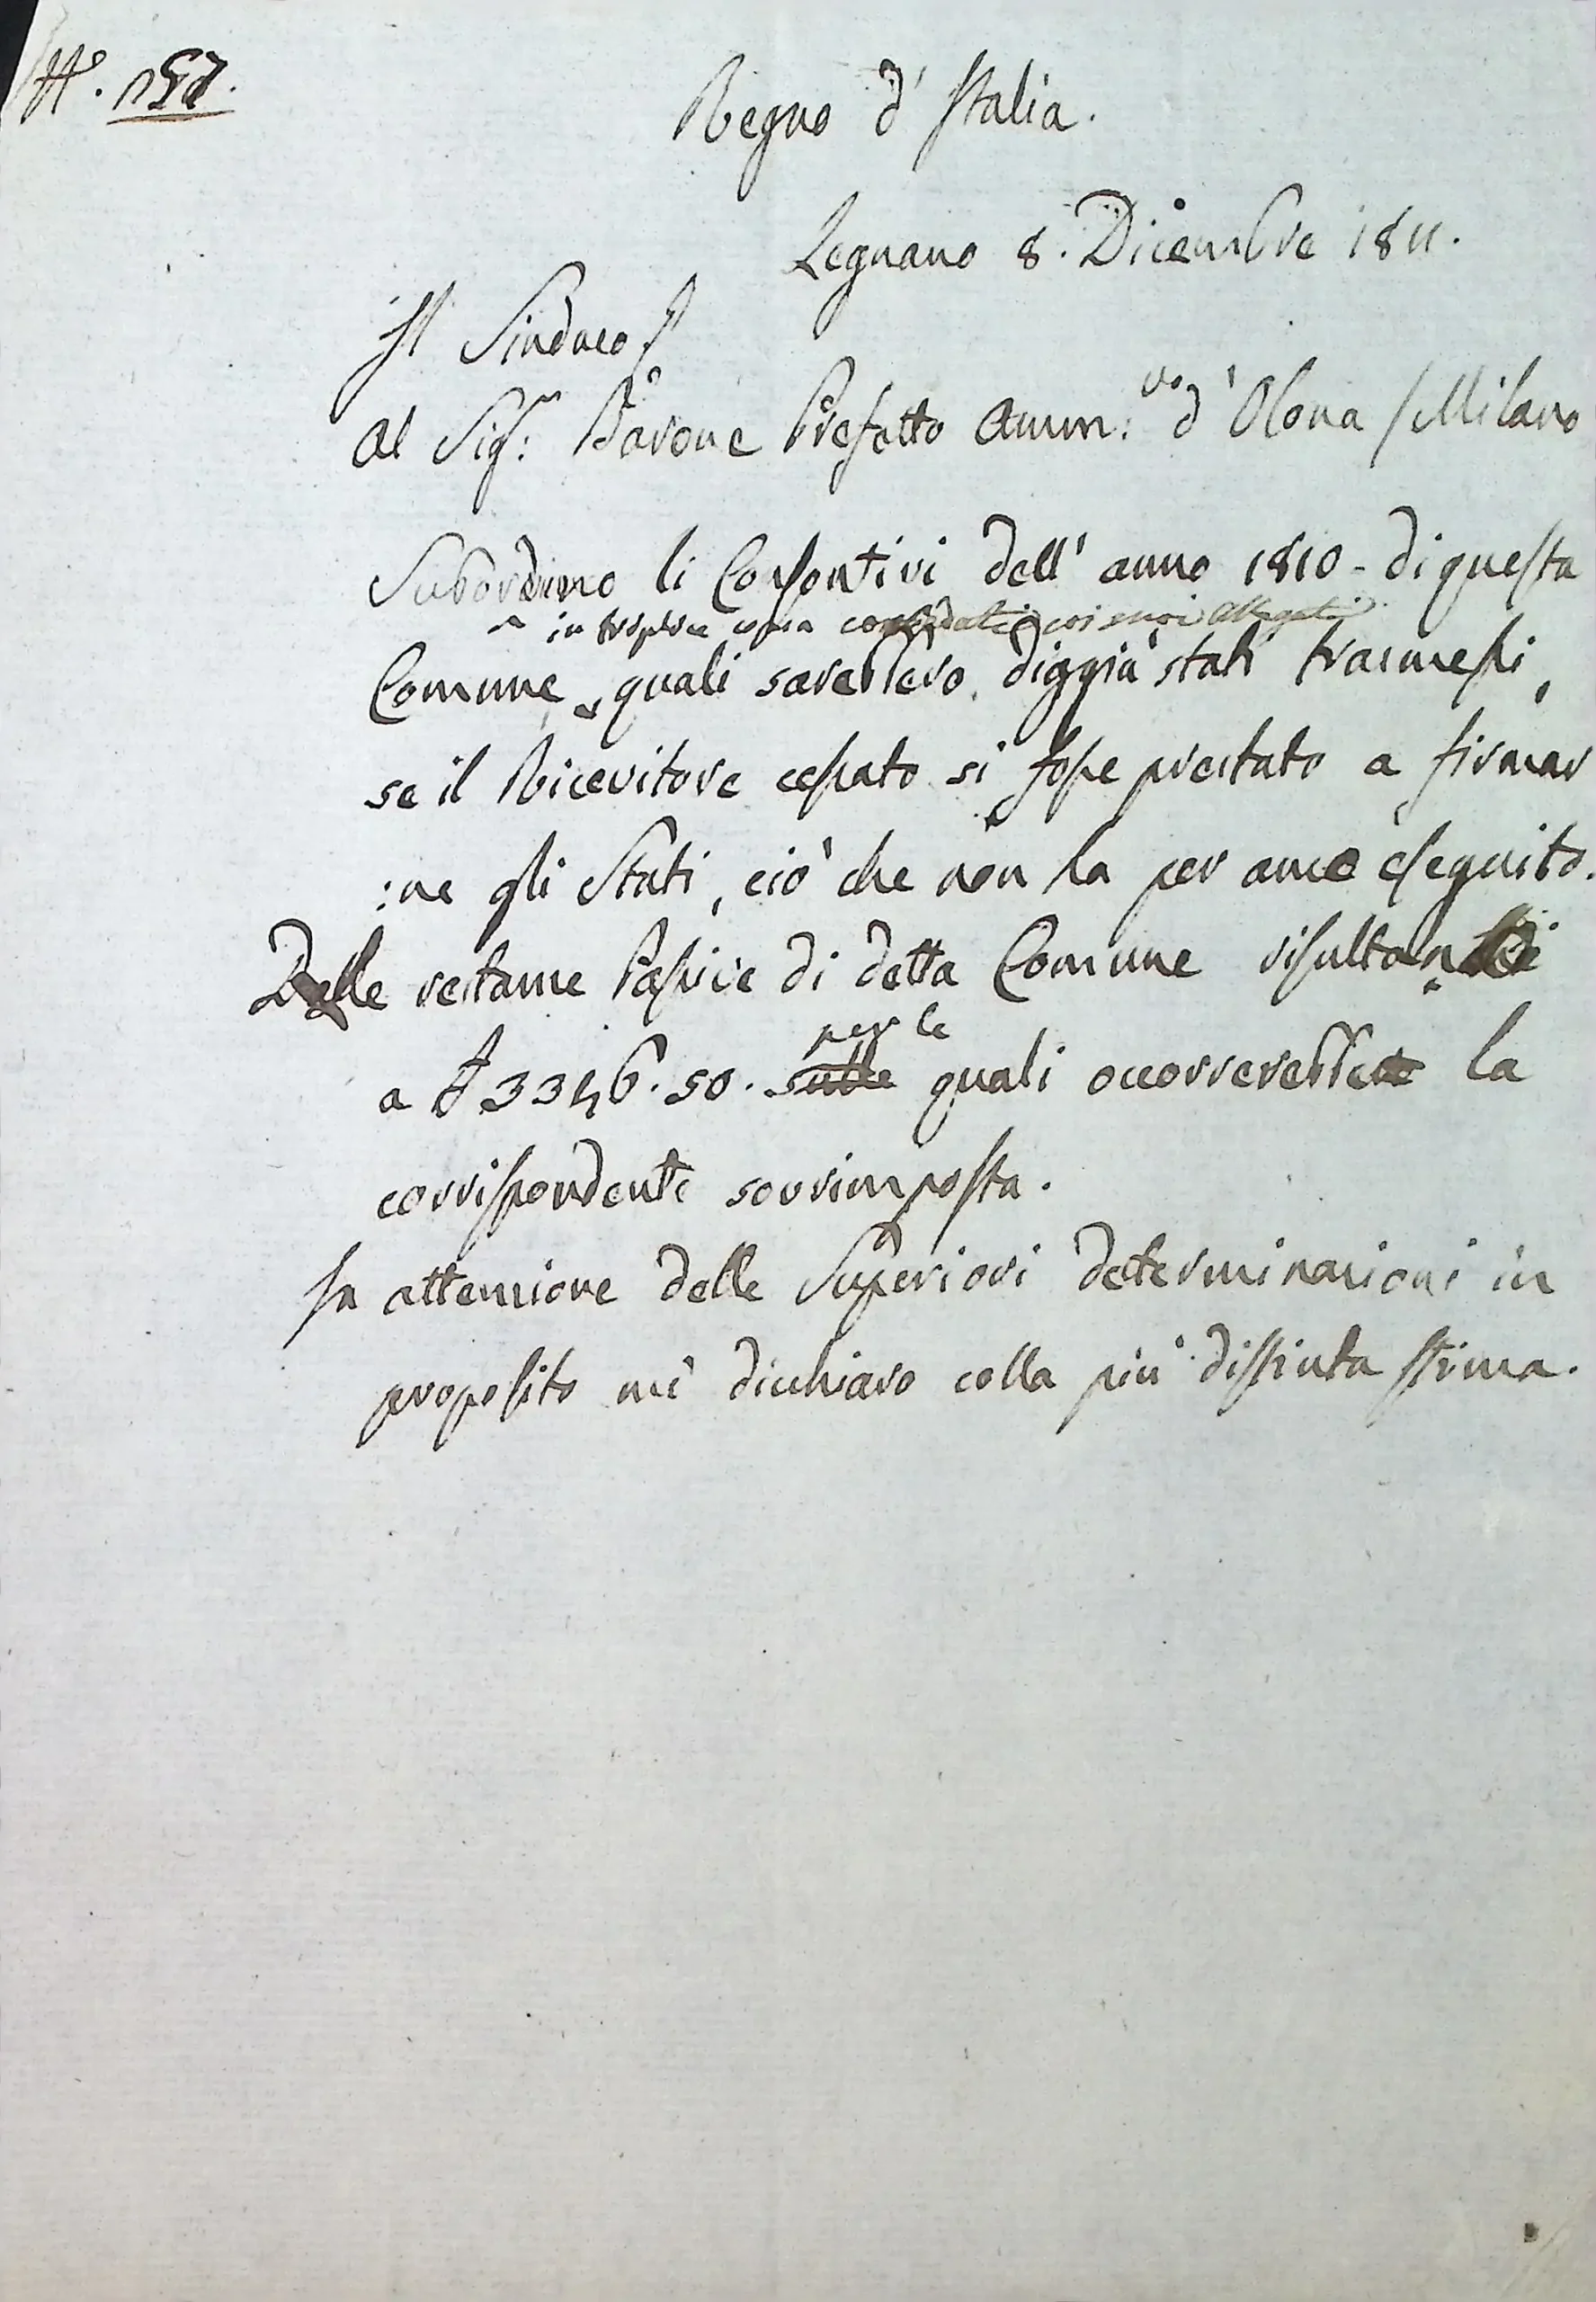 N°.
Regno d'Italia.
Legnano 8. Dicembre 1811.
Il Sindaco
Al Sig.r Barone Prefetto Amm:vo d'Olona / Milano
Subordino li Consontivi dell'anno 1810 - di questa
in triplice copia coi suoi allegati
Comune, quali sarebbero diggià stati trasmessi,
se il Ricevitore cessato si fosse prestato a firmar
:ne gli Stati, ciò che non ha per anco eseguito.
Delle restanze Passive di detta Comune risultan
per le
a £ 3346. 50. sulle quali occorrerebbe la
corrispondente sovrimposta.
In attenzione delle Superiori determinazioni in
proposito mi dicchiaro colla più distinta stima.